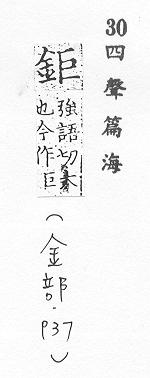 30四聲篇海
鉅
強語切大
也今作巨
(金部.P37)